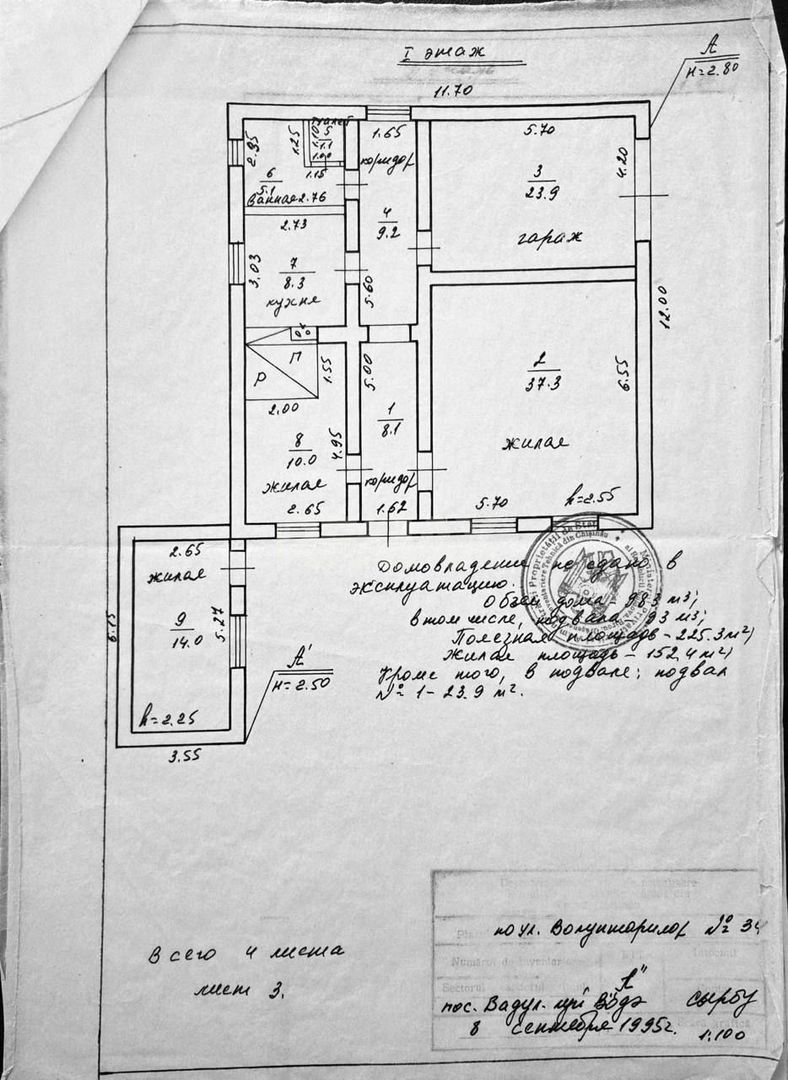 I этаж
А
н=2.80
11.70
2.95
1.25
туалет
1.10
5
1.1
1.00
1.15
6
5.1
Ванная 2.76
1.65
коридор
4
9.2
5.60
5.70
3
23.9
гараж
4.20
12.00
2.73
3.03
7
8.3
кухня
Р
П
1.55
2.00
8
10.0
4.95
жилая
2.65
5.00
1
8.1
коридор
1.62
2
37.3
6.55
жилая
5.70
h=2.55
2.65
жилая
9
14.0
5.27
6.15
h=2.25
3.55
А'
н=2.50
Домовладение не сдано в
эксплуатацию.
Объём дома - 983 м3;
в том числе, подвала 93 м3;
Полезная площадь - 225.3 м2;
Жилая площадь - 152,4 м2;
Кроме того, в подвале: подвал
№ 1 - 23.9 м2.
Всего 4 листа
лист 3.
по ул. Волунтарилор № 34
"А"
пос. Вадул-луй Водэ сырбу
8 сентября 1995г. 1:100